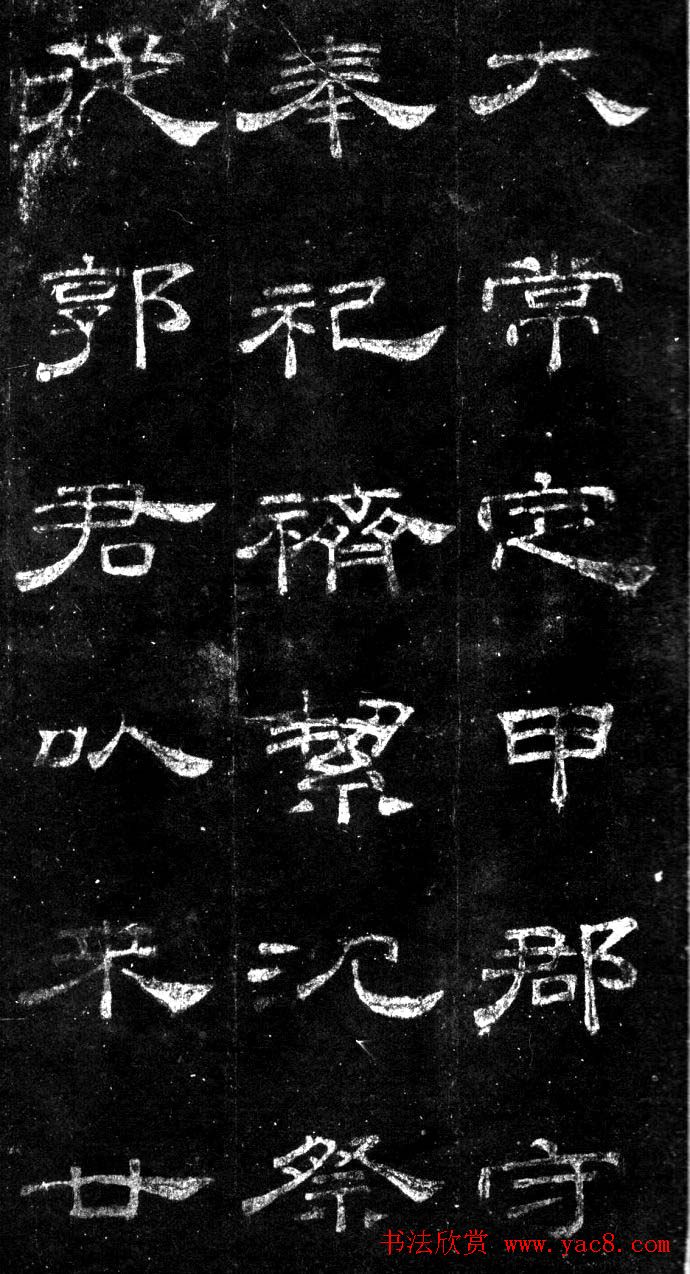 大常定甲郡守
奉祀禬絜沈祭
従郭君以来廿
书法欣赏 www.yac8.com